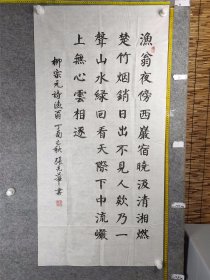 漁翁夜傍西巖宿曉汲清湘燃
楚竹烟銷日出不見人欸乃一
聲山水緑回看天際下中流巖
上無心雲相逐
柳宗元詩漁翁 丁酉之秋 張元華書